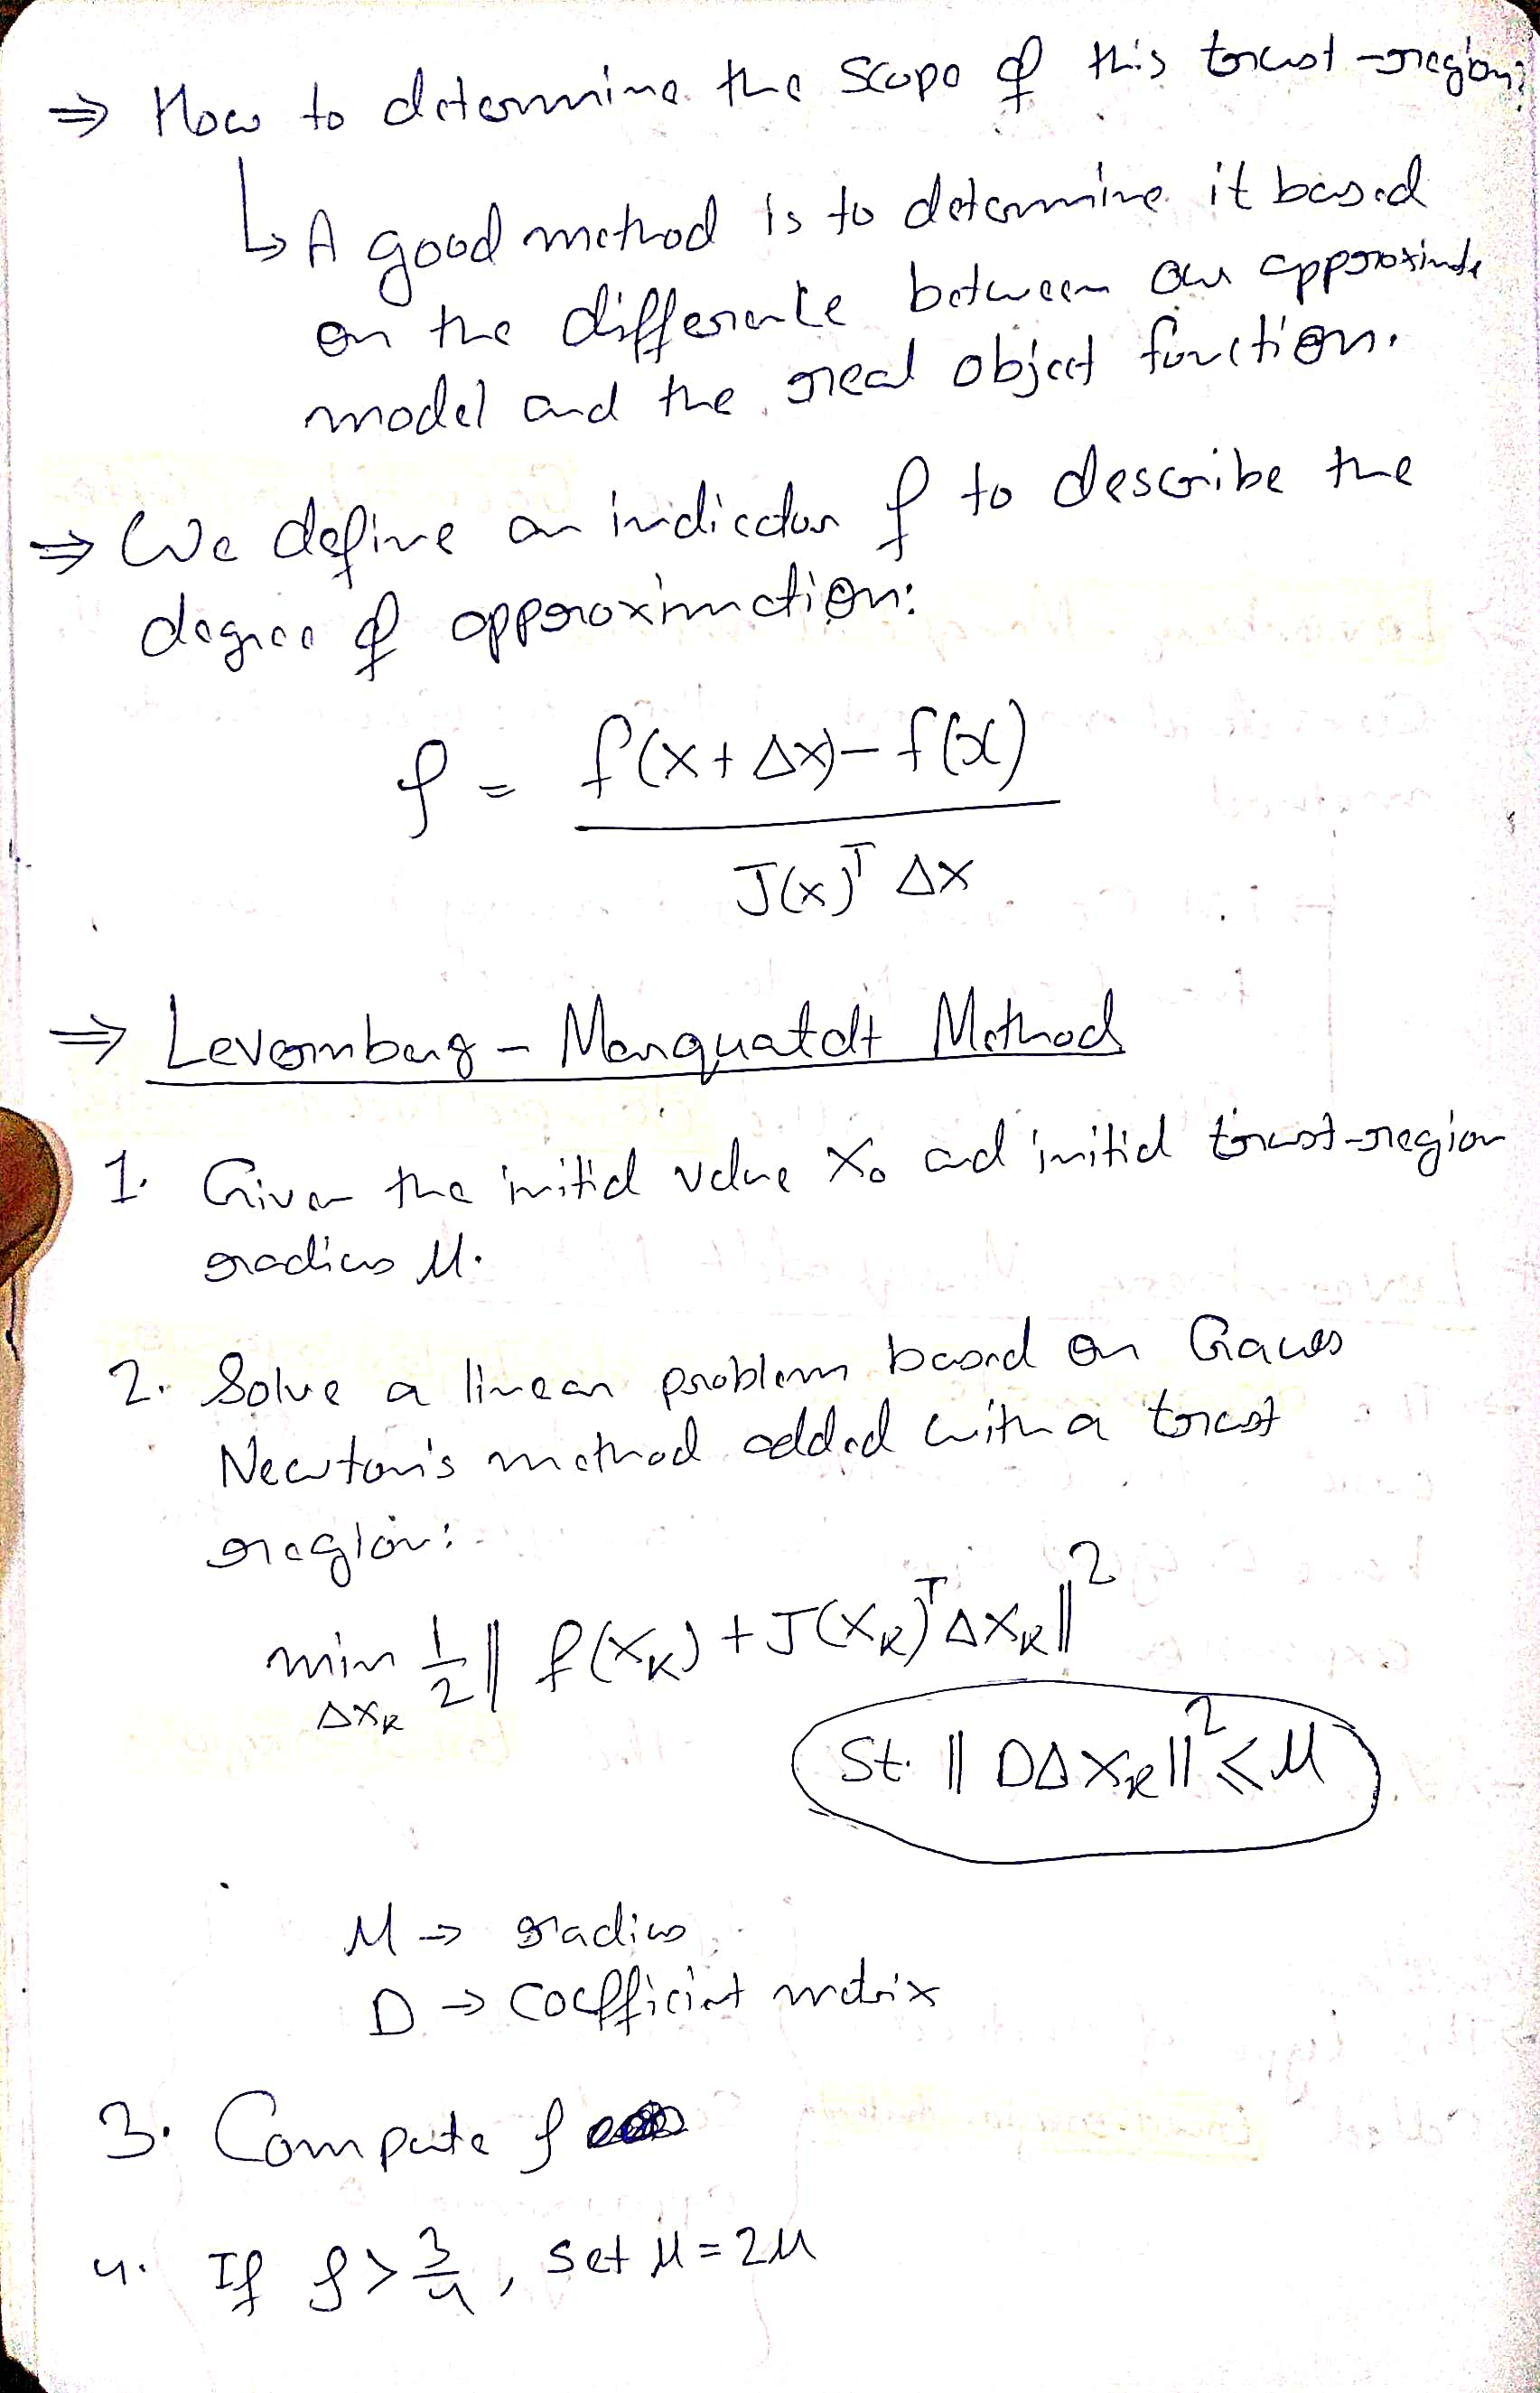 ⇒ How to determine the scope of this trust-region?
↳ A good method is to determine it based
on the difference between our approximate
model and the real object function.
⇒ We define an indicator ρ to describe the
degree of approximation:
ρ = f(x+Δx) - f(x)
J(x)ᵀ Δx
⇒ Levernberg - Marquatdt Method
1. Given the initial value x₀ and initial trust-region
radius μ.
2. Solve a linear problem based on Gauss
Newton's method added with a trust
region:
min 1/2 ‖ f(xₖ) + J(xₖ)ᵀ Δxₖ‖²
Δxₖ
St. ‖ DΔxₖ‖² ≤ μ
μ → radius
D → coefficient matrix
3. Compute ρ
4. If ρ > 3/4, set μ = 2μ